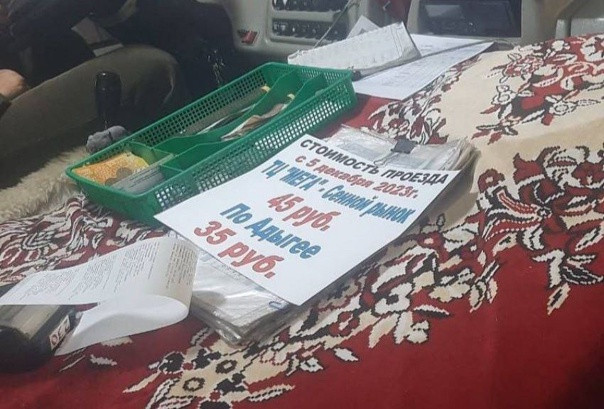 СТОИМОСТЬ ПРОЕЗДА
с 5 декабря 2023г.
ТЦ "МЕГА" - Сенной рынок
45 руб.
По Адыгее
35 руб.